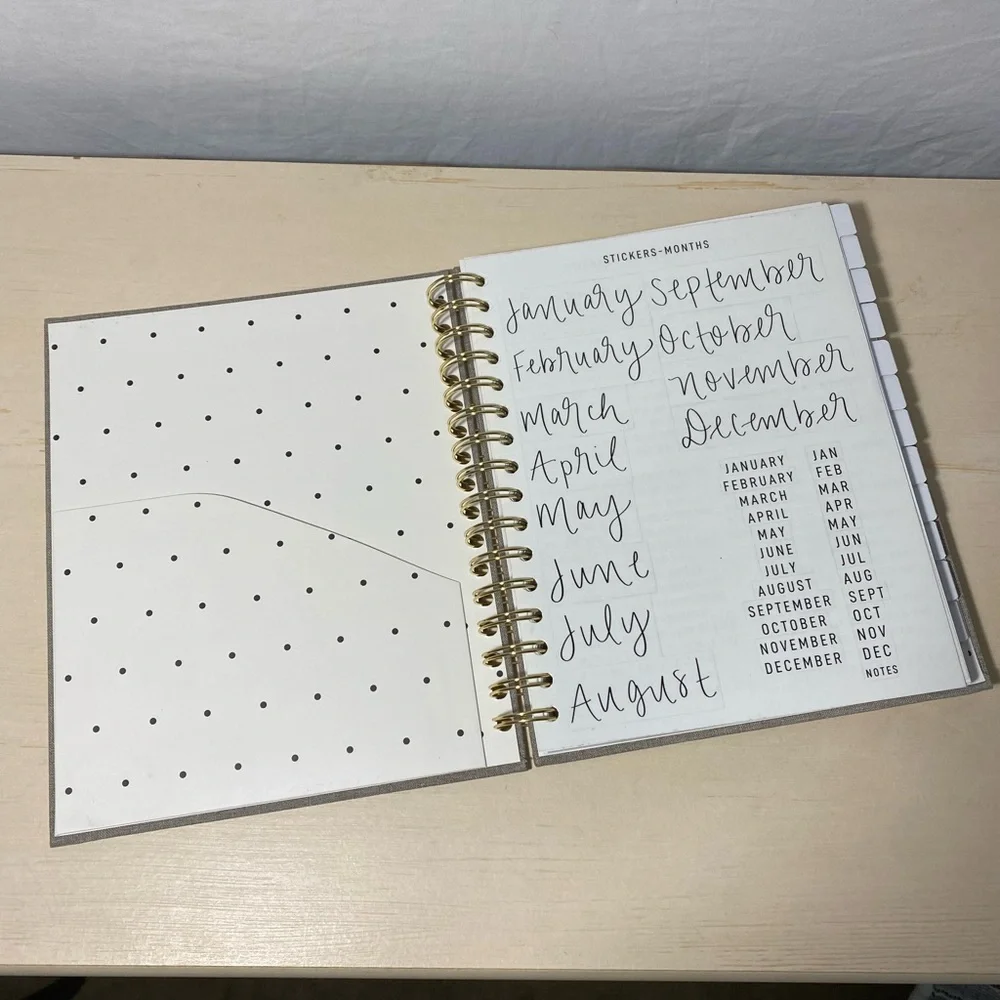 STICKERS-MONTHS
January
February
March
April
May
June
July
August
September
October
November
December
JANUARY
FEBRUARY
MARCH
APRIL
MAY
JUNE
JULY
AUGUST
SEPTEMBER
OCTOBER
NOVEMBER
DECEMBER
JAN
FEB
MAR
APR
MAY
JUN
JUL
AUG
SEPT
OCT
NOV
DEC
NOTES